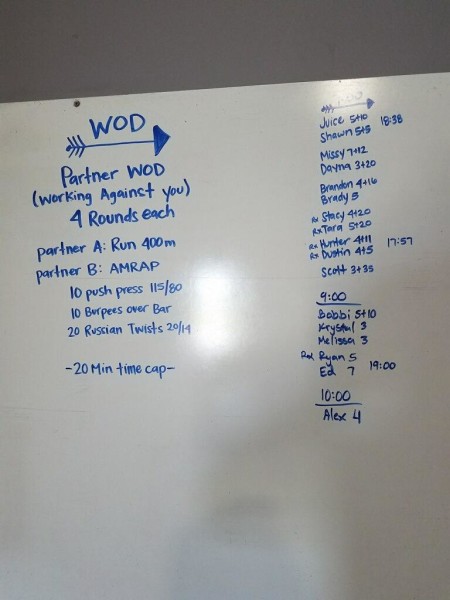 WOD
Partner WOD
(Working Against you)
4 Rounds each
partner A: Run 400m
partner B: AMRAP
10 push press 115/80
10 Burpees over Bar
20 Russian Twists 20/14
-20 Min time cap-
Juice 5+10 18:38
Shawn 5+5
Missy 7+12
Dayna 3+20
Brandon 4+16
Brady 5
Rx Stacy 4+20
Rx Tara 5+20
Rx Hunter 4+11 17:57
Rx Dustin 4+5
Scott 3+35
9:00
Bobbi 5+10
Krystal 3
Melissa 3
Rx Ryan 5
Ed 7 19:00
10:00
Alex 4